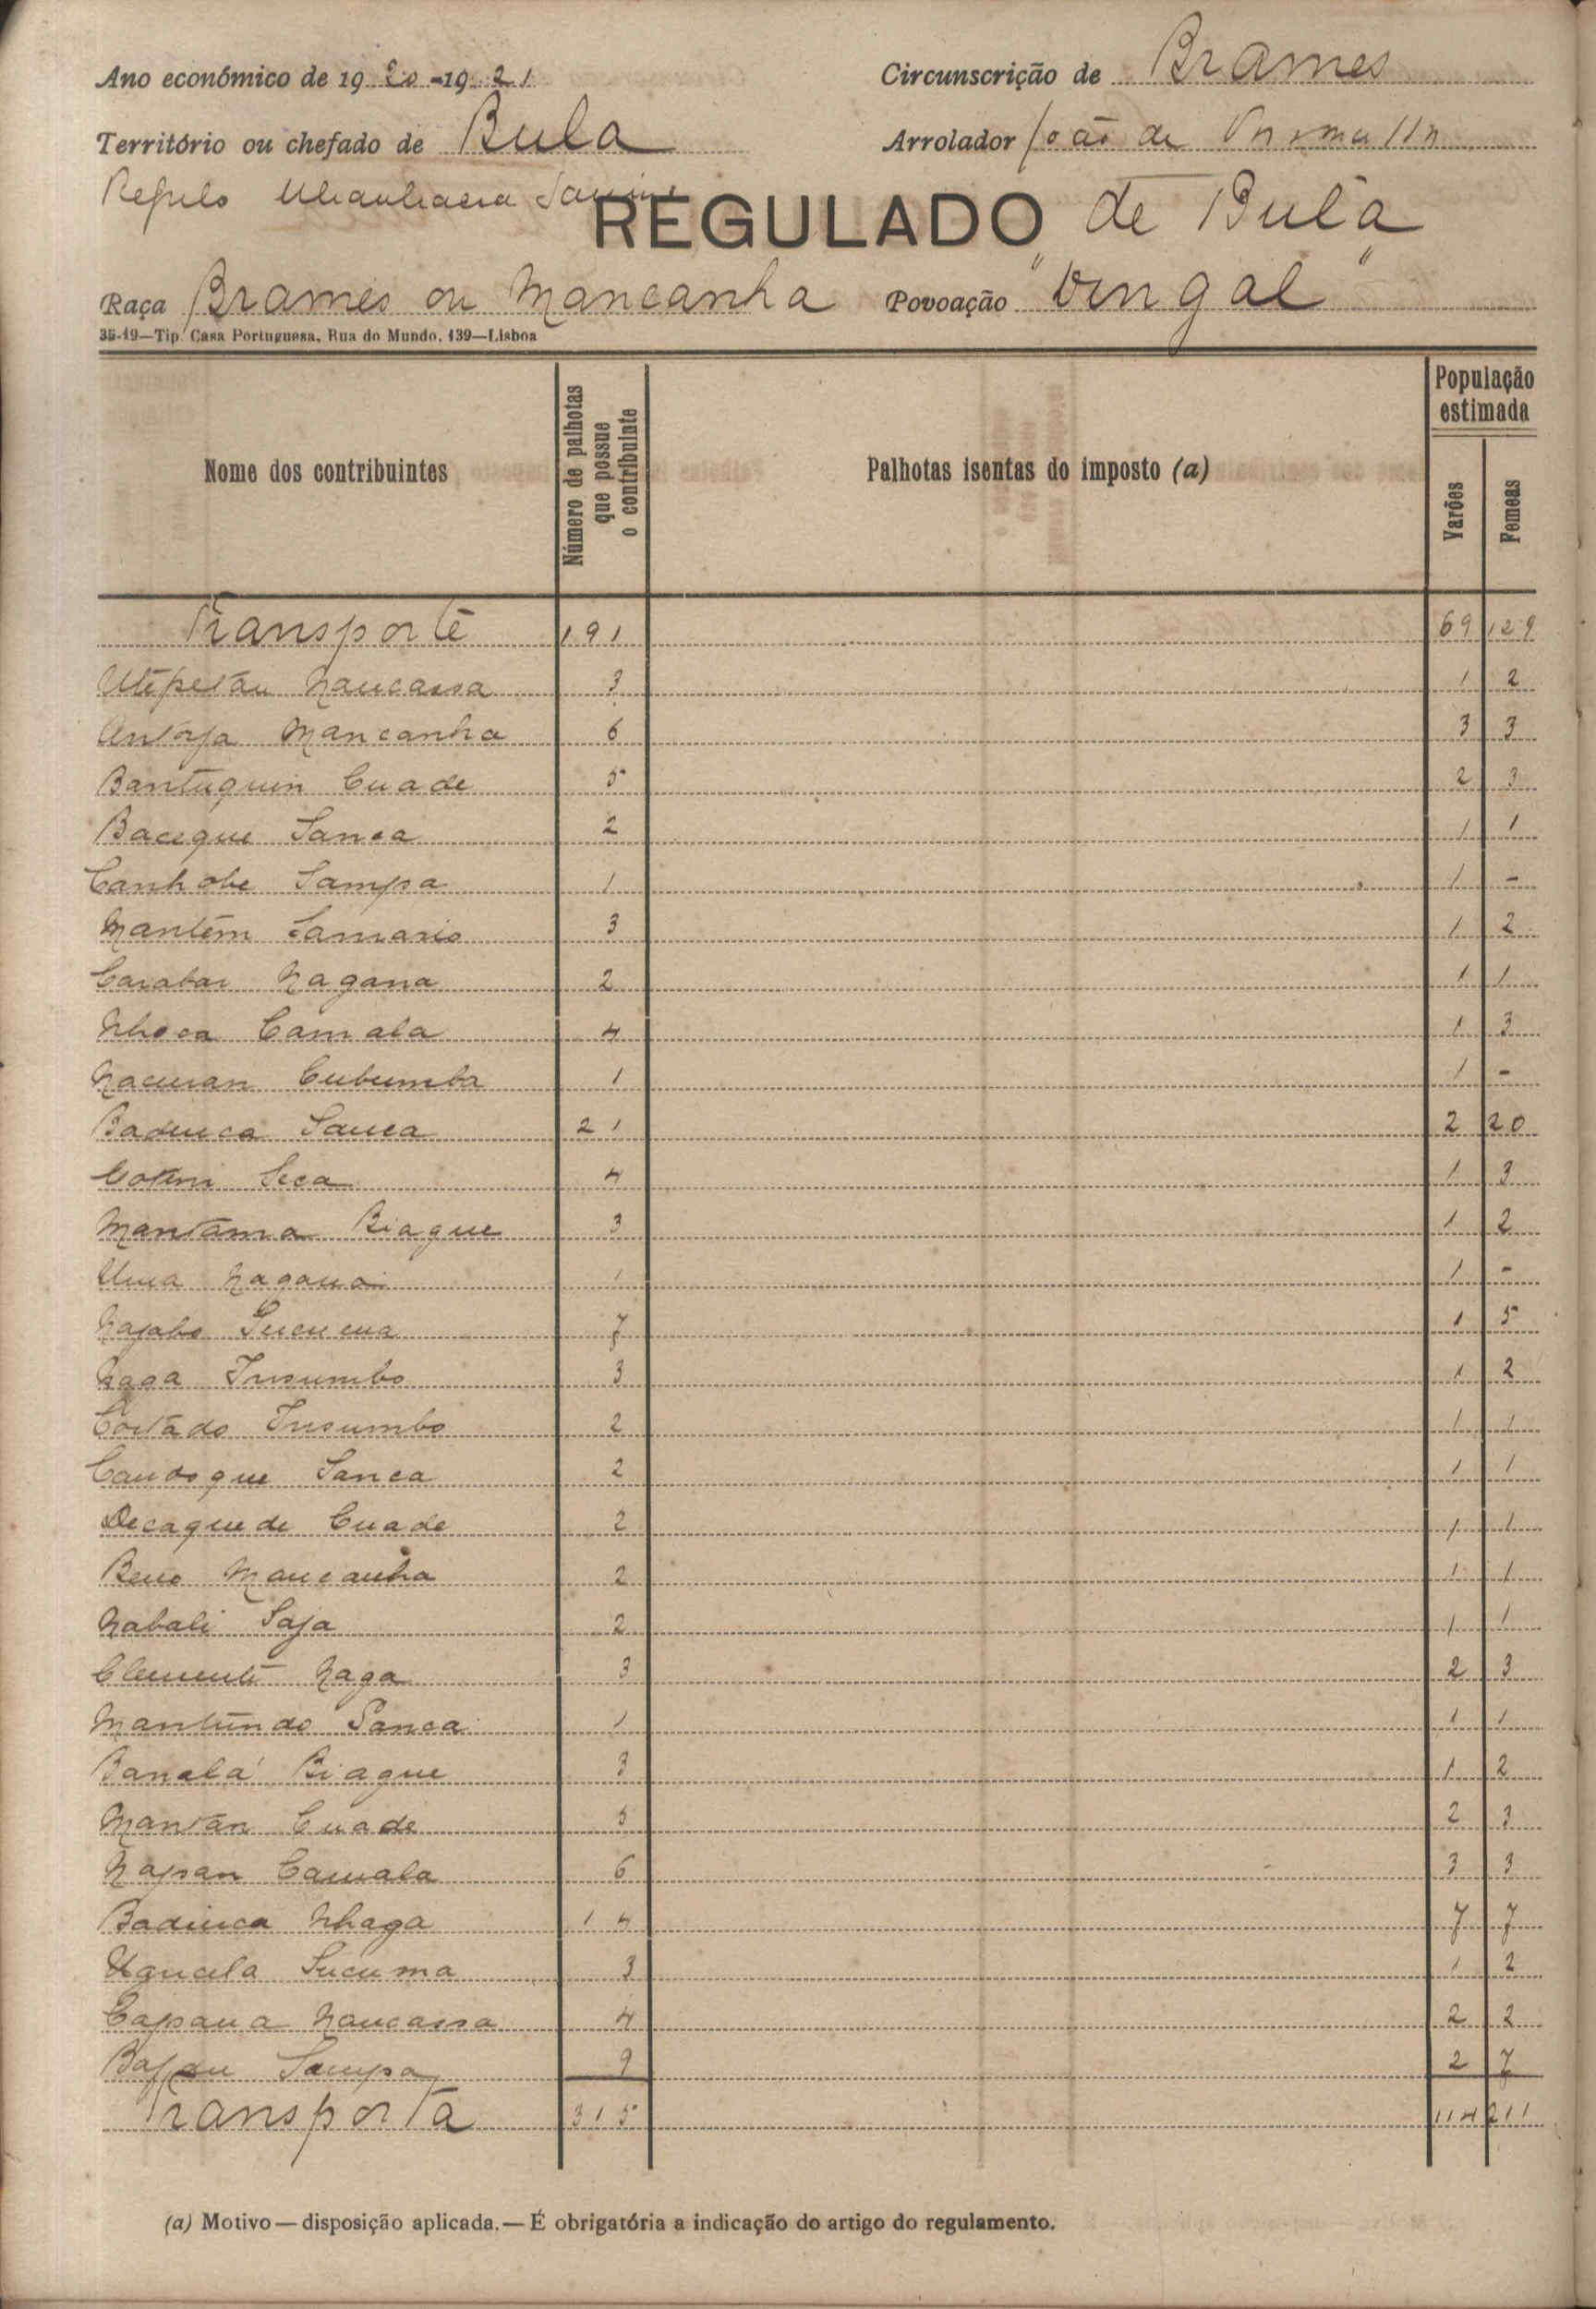 Ano económico de 1920-1921
Circunscrição de Brames
Território ou chefado de Bula
Arrolador João de
Regulo
REGULADO de Bula
Raça Brames ou Mancanha
Povoação "Bingal"
35-19—Tip. Casa Portuguesa, Rua do Mundo, 139—Lisboa
Nome dos contribuintes
Número de palhotas que possue o contribuinte
Palhotas isentas do imposto (a)
População estimada
Varões
Femeas
Transporte 191 69 129
Naucassa 3 1 2
Mancanha 6 3 3
Bantuquin Cuade 5 2 3
Baceque Sanca 2 1 1
Canhobe Sampa 1 1 -
Mantêm Samario 3 1 2
Carabar Nagana 2 1 1
Nhoca Camala 4 1 3
Nacuran Cubumba 1 1 -
Baduica Sanca 21 2 20
Cotem Seca 4 1 3
Mantama Biague 3 1 2
Uma Nagana 1 1 -
Sucuma 7 1 5
Naga Insumbo 3 1 2
Insumbo 2 1 1
Caudoque Sanca 2 1 1
Decaquede Cuade 2 1 1
Beno Mancanha 2 1 1
Nabali Saja 2 1 1
Clemente Naga 3 2 3
Mantundo Sanca 1 1 1
Banalá Biague 3 1 2
Mantan Cuade 5 2 3
Napan Camala 6 3 3
Badinca Nhaga 14 7 7
Sucuma 3 1 2
Capsaua Naucassa 4 2 2
Sampa 9 2 7
Transporta 315 114 211
(a) Motivo — disposição aplicada. — É obrigatória a indicação do artigo do regulamento.